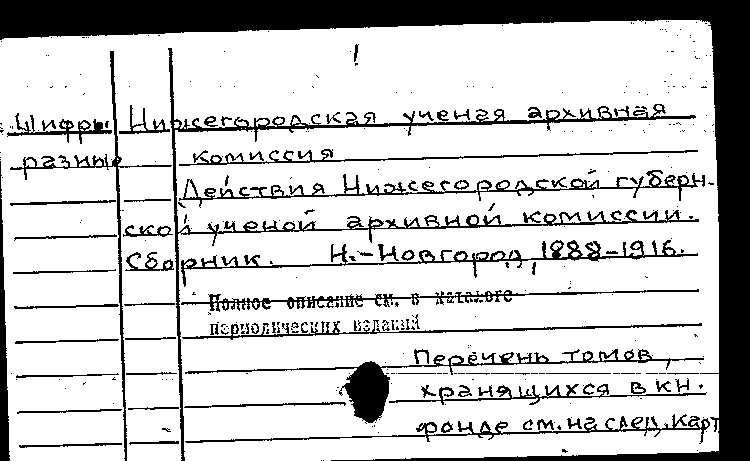 !
Шифры Нижегородская ученая архивная
разные комиссия
Действия Нижегородской губерн-
ской ученой архивной комиссии.
Сборник. Н.-Новгород, 1888-1916.
Полное описание см. в каталоге
периодических изданий
Перечень томов,
хранящихся в кн.
фонде см. на след. карт